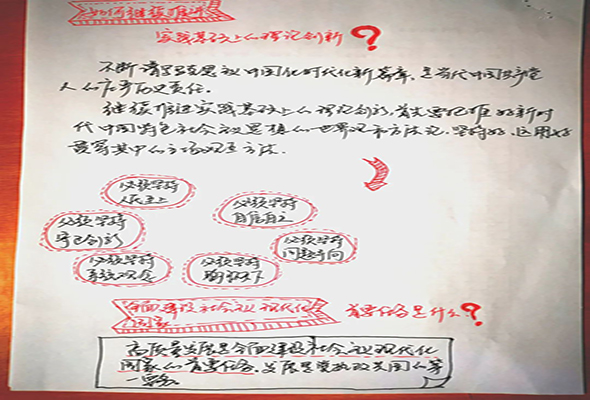 如何继续推进
实践基础上的理论创新?
不断谱写马克思主义中国化时代化新篇章,是当代中国共产党
人的庄严历史责任。
继续推进实践基础上的理论创新,首先要把握好新时
代中国特色社会主义思想的世界观和方法论,坚持好、运用好
贯穿其中的立场观点方法.
必须坚持
人民至上
必须坚持
自信自立
必须坚持
守正创新
必须坚持
问题导向
必须坚持
系统观念
必须坚持
胸怀天下
全面建设社会主义现代化
国家
首要任务是什么?
高质量发展是全面建设社会主义现代化
国家的首要任务。发展是党执政兴国的第
一要务。